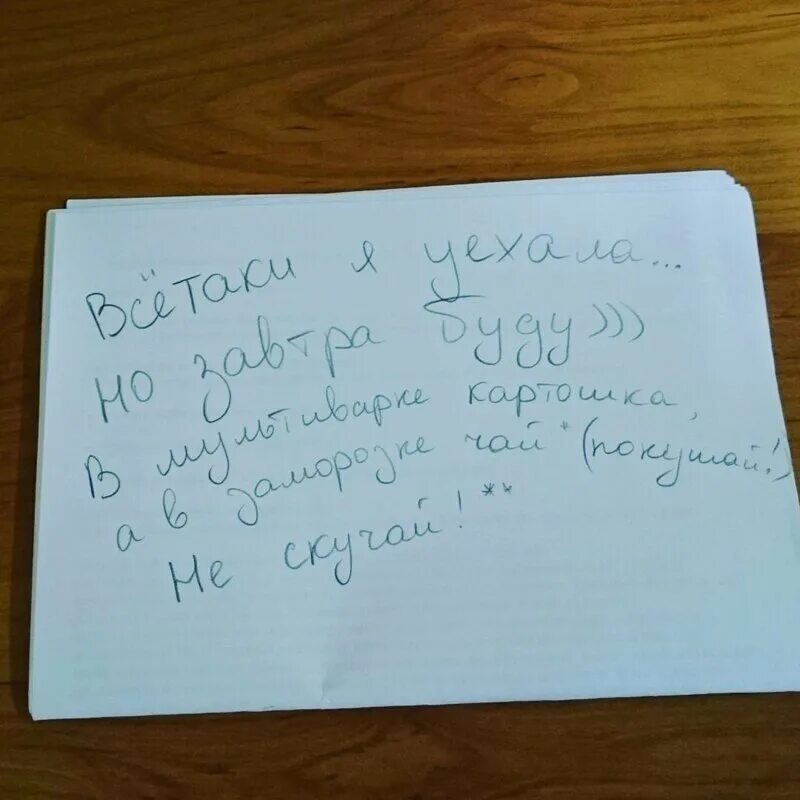 Всётаки я уехала...
но завтра буду)))
В мультиварке картошка,
а в заморозке чай* (покушай!)
Не скучай!**